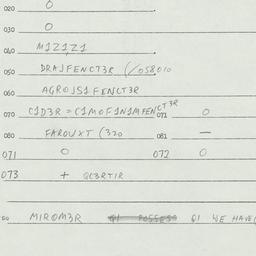 020 0
030 0
040 M1Z1,Z1
050 DRAJFENCT3R (/058010
060 AGROJS1FENCT3R
070 C1D3R = C1MOF1N1MFENCT3R 071 0
080 FAROUXT (320 081 —
071 0 072 0
073 + QC3RTIR
MIROM3R Q1 POSSESS Q1 WE HAVE